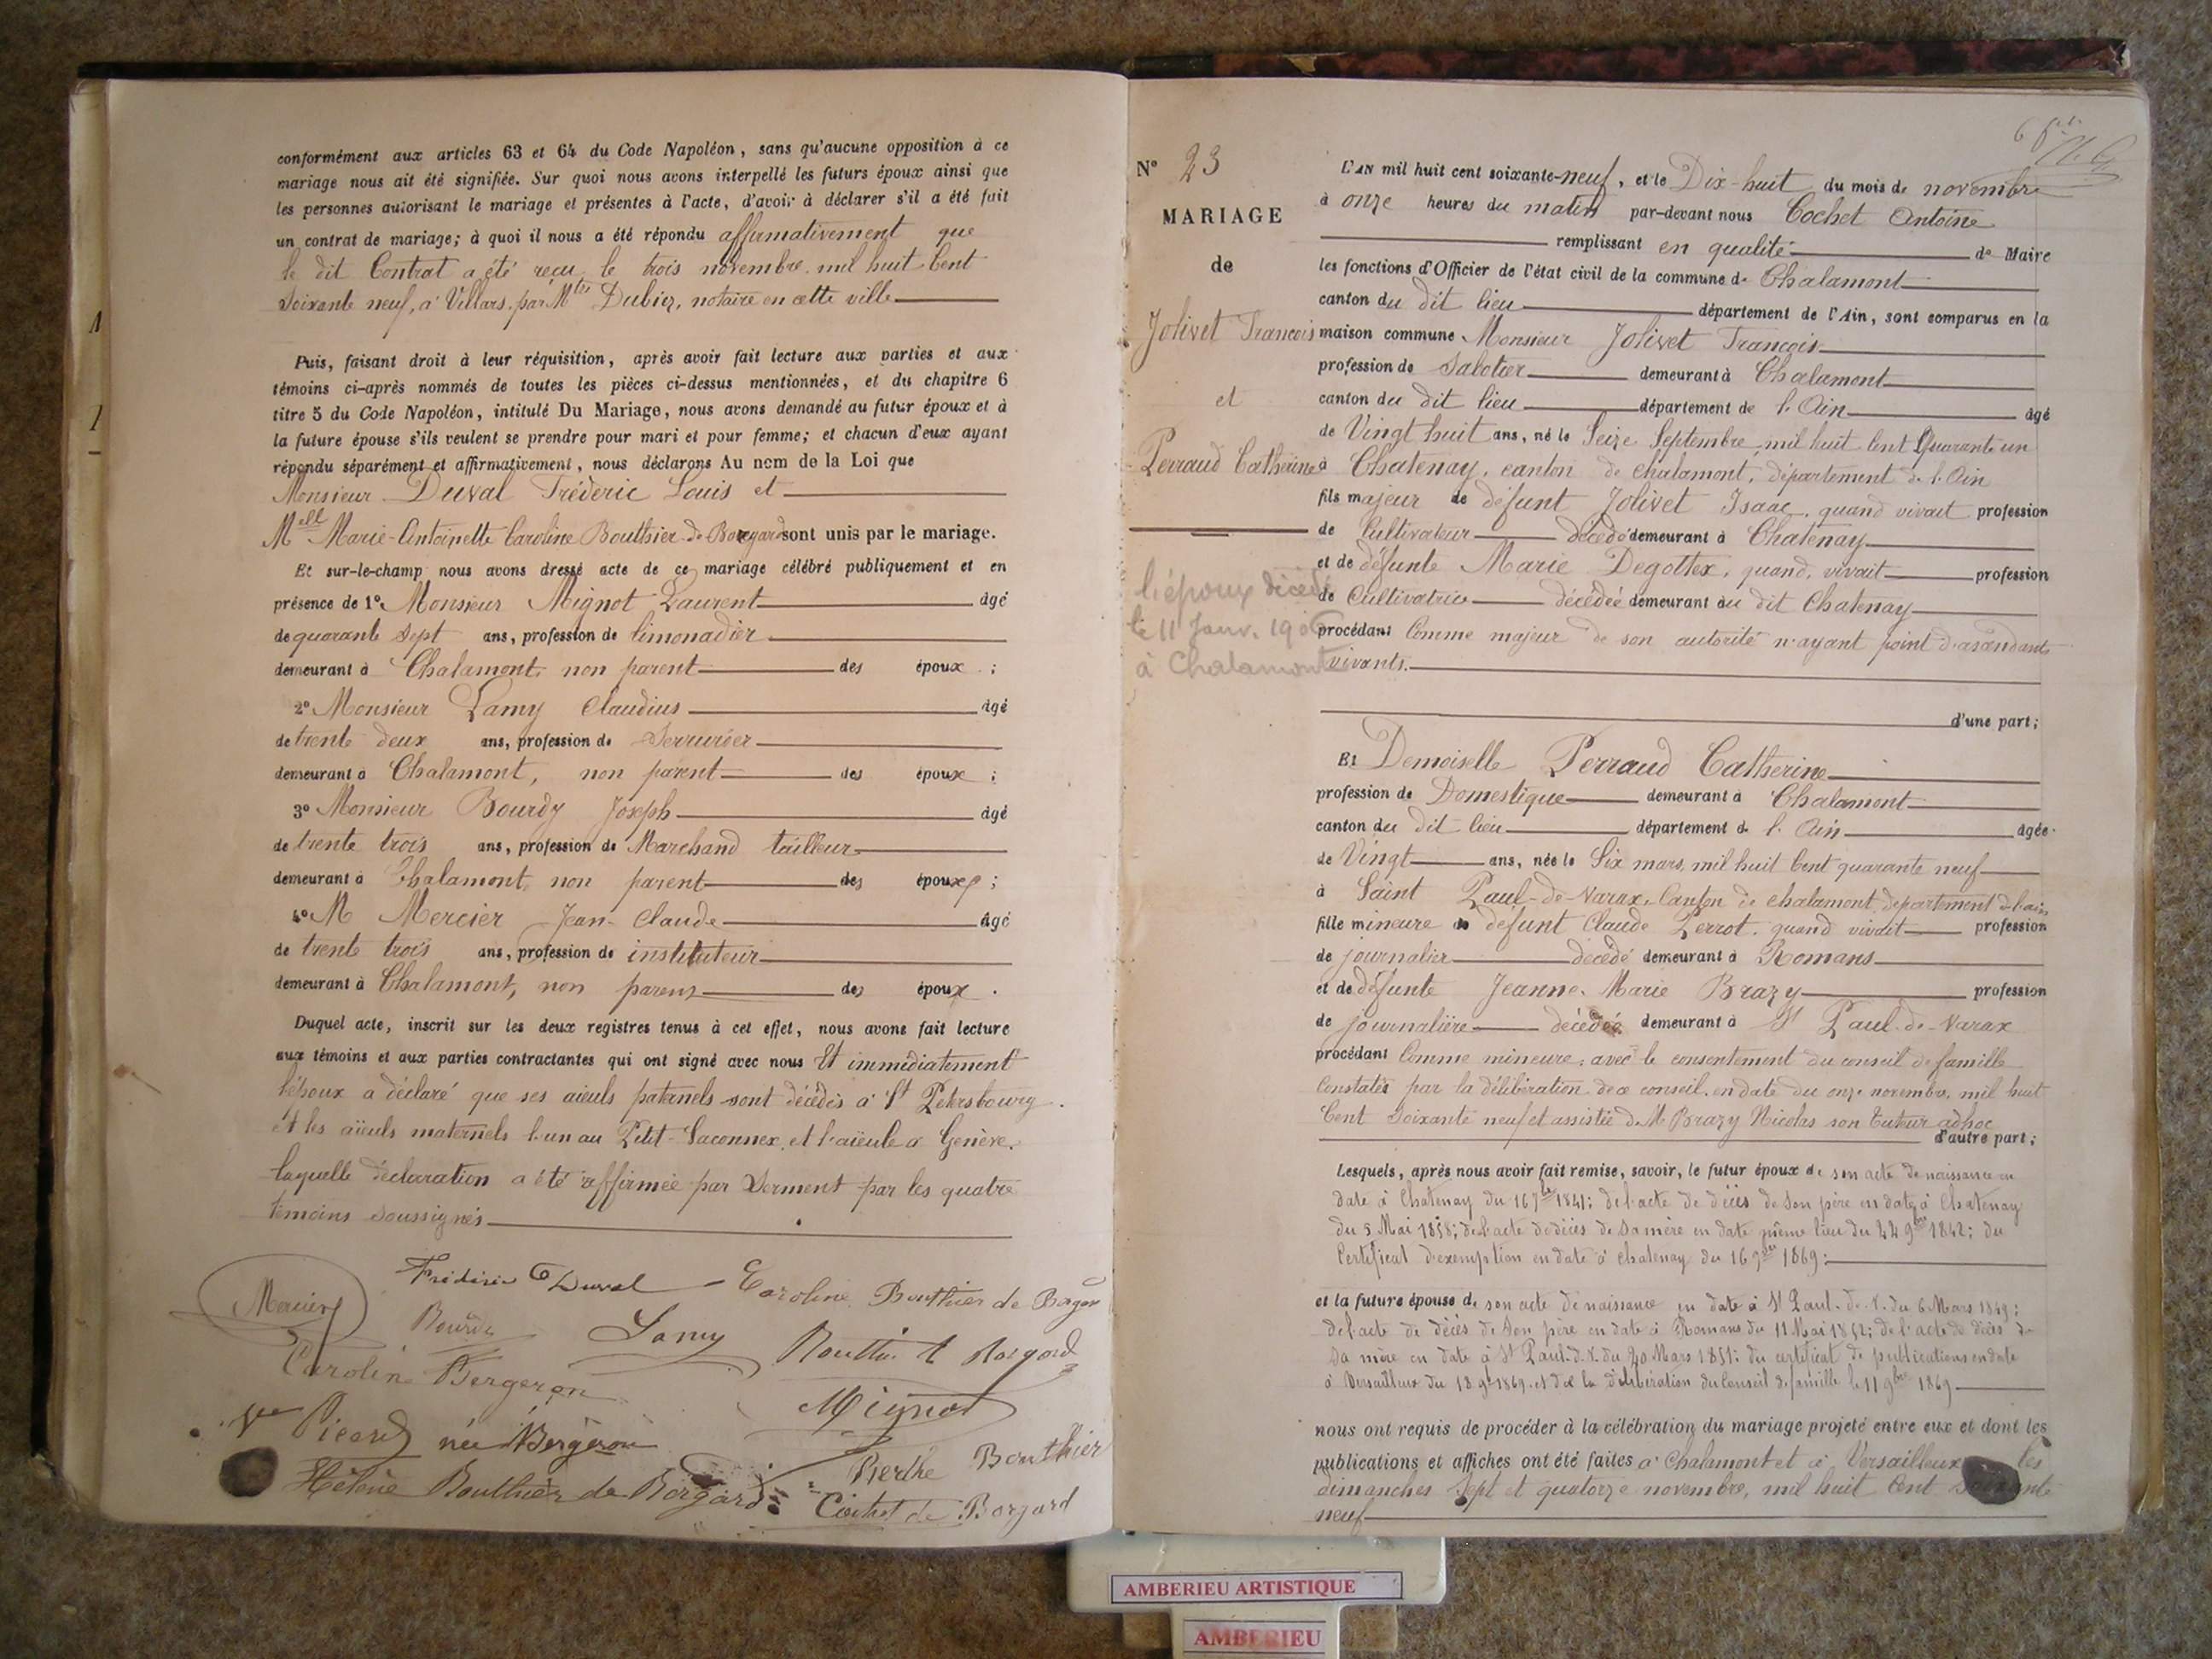 conformément aux articles 63 et 64 du Code Napoléon, sans qu'aucune opposition à ce
mariage nous ait été signifiée. Sur quoi nous avons interpellé les futurs époux ainsi que
les personnes autorisant le mariage et présentes à l'acte, d'avoir à déclarer s'il a été fait
un contrat de mariage; à quoi il nous a été répondu affirmativement que
le dit Contrat a été reçu le trois novembre mil huit Cent
Soixante neuf, à Villars, par Mtre Dubiez, notaire en cette ville
Puis, faisant droit à leur réquisition, après avoir fait lecture aux parties et aux
témoins ci-après nommés de toutes les pièces ci-dessus mentionnées, et du chapitre 6
titre 5 du Code Napoléon, intitulé Du Mariage, nous avons demandé au futur époux et à
la future épouse s'ils veulent se prendre pour mari et pour femme; et chacun d'eux ayant
répondu séparément et affirmativement, nous déclarons Au nom de la Loi que
Monsieur Duval Fréderic Louis et
Melle Marie-Antoinette Caroline Bouthier de Borgard sont unis par le mariage.
Et sur-le-champ nous avons dressé acte de ce mariage célébré publiquement et en
présence de 1º Monsieur Mignot Laurent âgé
de quarante sept ans, profession de limonadier
demeurant à Chalamont non parent des époux ;
2º Monsieur Lamy Claudius âgé
de trente deux ans, profession de Serrurier
demeurant à Chalamont, non parent des époux ;
3º Monsieur Bourdy Joseph âgé
de trente trois ans, profession de Marchand tailleur
demeurant à Chalamont, non parent des époux ;
4º M Mercier Jean-Claude âgé
de trente trois ans, profession de instituteur
demeurant à Chalamont, non parent des époux .
Duquel acte, inscrit sur les deux registres tenus à cet effet, nous avons fait lecture
aux témoins et aux parties contractantes qui ont signé avec nous Et immédiatement
l'époux a déclaré que ses aieuls paternels sont décédés à St Petersbourg.
Et les aïeuls maternels l'un au Petit-Saconnex, et l'aïeule à Genève.
laquelle déclaration a été affirmée par Serment par les quatre
témoins soussignés
Fréderic Duval Caroline Bouthier de Borgard
Mercier Bourdy Lamy Bouthier de Borgard
Caroline Bergeron Mignot
Vve Picard née Bergeron Berthe Bouthier
Hélène Bouthier de Borgard de Borgard
Nº 23
MARIAGE
de
Jolivet François
et
Perraud Catherine
l'époux décédé
le 11 Janv. 1906
à Chalamont
L'AN mil huit cent soixante-neuf, et le Dix-huit du mois de novembre
à onze heures du matin par-devant nous Cochet Antoine
remplissant en qualité de Maire
les fonctions d'Officier de l'état civil de la commune de Chalamont
canton du dit lieu département de l'Ain, sont comparus en la
maison commune Monsieur Jolivet François
profession de Sabotier demeurant à Chalamont
canton du dit lieu département de l'Ain âgé
de Vingt huit ans, né le Seize Septembre, mil huit Cent Quarante un
à Chatenay, canton de Chalamont, département de l'Ain
fils majeur de défunt Jolivet Isaac, quand vivait profession
de Cultivateur décédé demeurant à Chatenay
et de défunte Marie Degottex, quand vivait profession
de Cultivatrice décédée demeurant au dit Chatenay
procédant Comme majeur de son autorité n'ayant point d'ascendants
vivants.
d'une part;
Et Demoiselle Perraud Catherine
profession de Domestique demeurant à Chalamont
canton du dit lieu département de l'Ain âgée
de Vingt ans, née le Six mars, mil huit Cent quarante neuf
à Saint Paul-de-Varax, Canton de Chalamont, département de l'ain
fille mineure de défunt Claude Perrot, quand vivait profession
de journalier décédé demeurant à Romans
et de défunte Jeanne-Marie Brazy profession
de journalière décédée demeurant à St Paul-de-Varax
procédant Comme mineure, avec le consentement du conseil de famille
Constatés par la délibération de ce conseil en date du onze novembre, mil huit
Cent Soixante neuf et assistée de M Brazy Nicolas son tuteur adhoc
d'autre part;
Lesquels, après nous avoir fait remise, savoir, le futur époux de son acte de naissance en
date à Chatenay du 16 7bre 1841; de l'acte de décès de Son père en date à Chatenay
du 5 Mai 1858; de l'acte de décès de sa mère en date même lieu du 24 9bre 1842; du
Certificat d'exemption en date à Chatenay du 16 9bre 1869;
et la future épouse de son acte de naissance en date à St Paul-de-V. du 6 Mars 1849;
de l'acte de décès de Son père en date à Romans du 11 Mai 1852; de l'acte de décès de
Sa mère en date à St Paul-d-V. du 20 Mars 1851; du certificat de publications en date
à Versailleux du 18 9bre 1869 et de la délibération du Conseil de famille le 11 9bre 1869
nous ont requis de procéder à la célébration du mariage projeté entre eux et dont les
publications et affiches ont été faites à Chalamont et à Versailleux les
dimanches Sept et quatorze novembre, mil huit Cent Soixante
neuf
AMBERIEU ARTISTIQUE
AMBERIEU